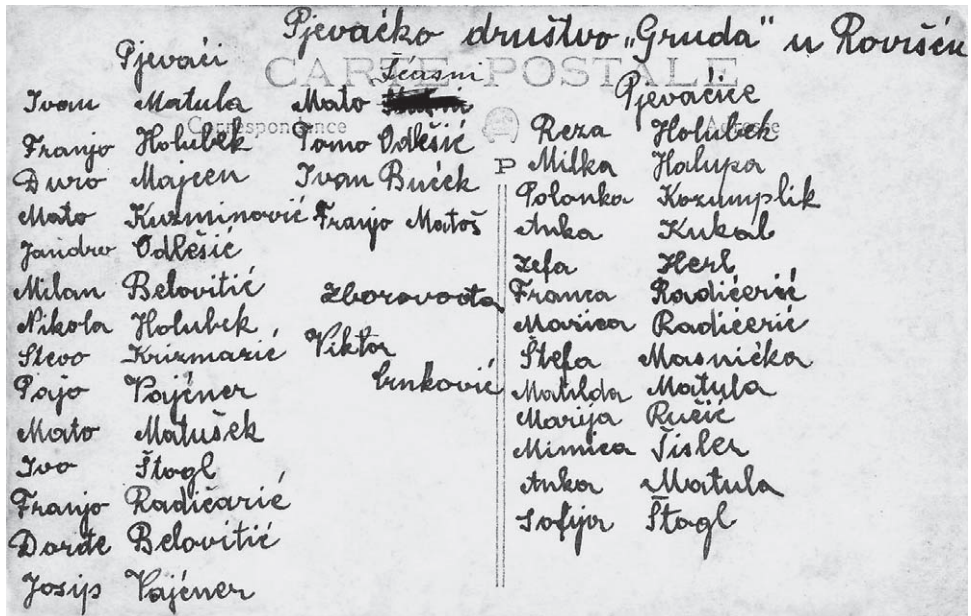 Pjevačko društvo „Gruda“ u Rovišću
CARTE POSTALE
Correspondence
Adresse
P
Pjevači
Ivan Matula
Franjo Holubek
Đuro Majcen
Mato Kuzminović
Jandro Odlešić
Milan Belovitić
Nikola Holubek
Stevo Krizmarić
Pajo Vajćner
Mato Matušek
Ivo Štagl
Franjo Radičarić
Đorđe Belovitić
Josip Vajćner
Mato Šćasni
Tomo Odlešić
Ivan Buček
Franjo Matoš
Zborovođa
Viktor
Crnković
Pjevačice
Reza Holubek
Milka Halupa
Polonka Kozumplik
Anka Kukal
Zefa Herl
Franca Radičerić
Marica Radičerić
Štefa Masnička
Matilda Matula
Marija Ručić
Mimica Šisler
Anka Matula
Sofija Štagl